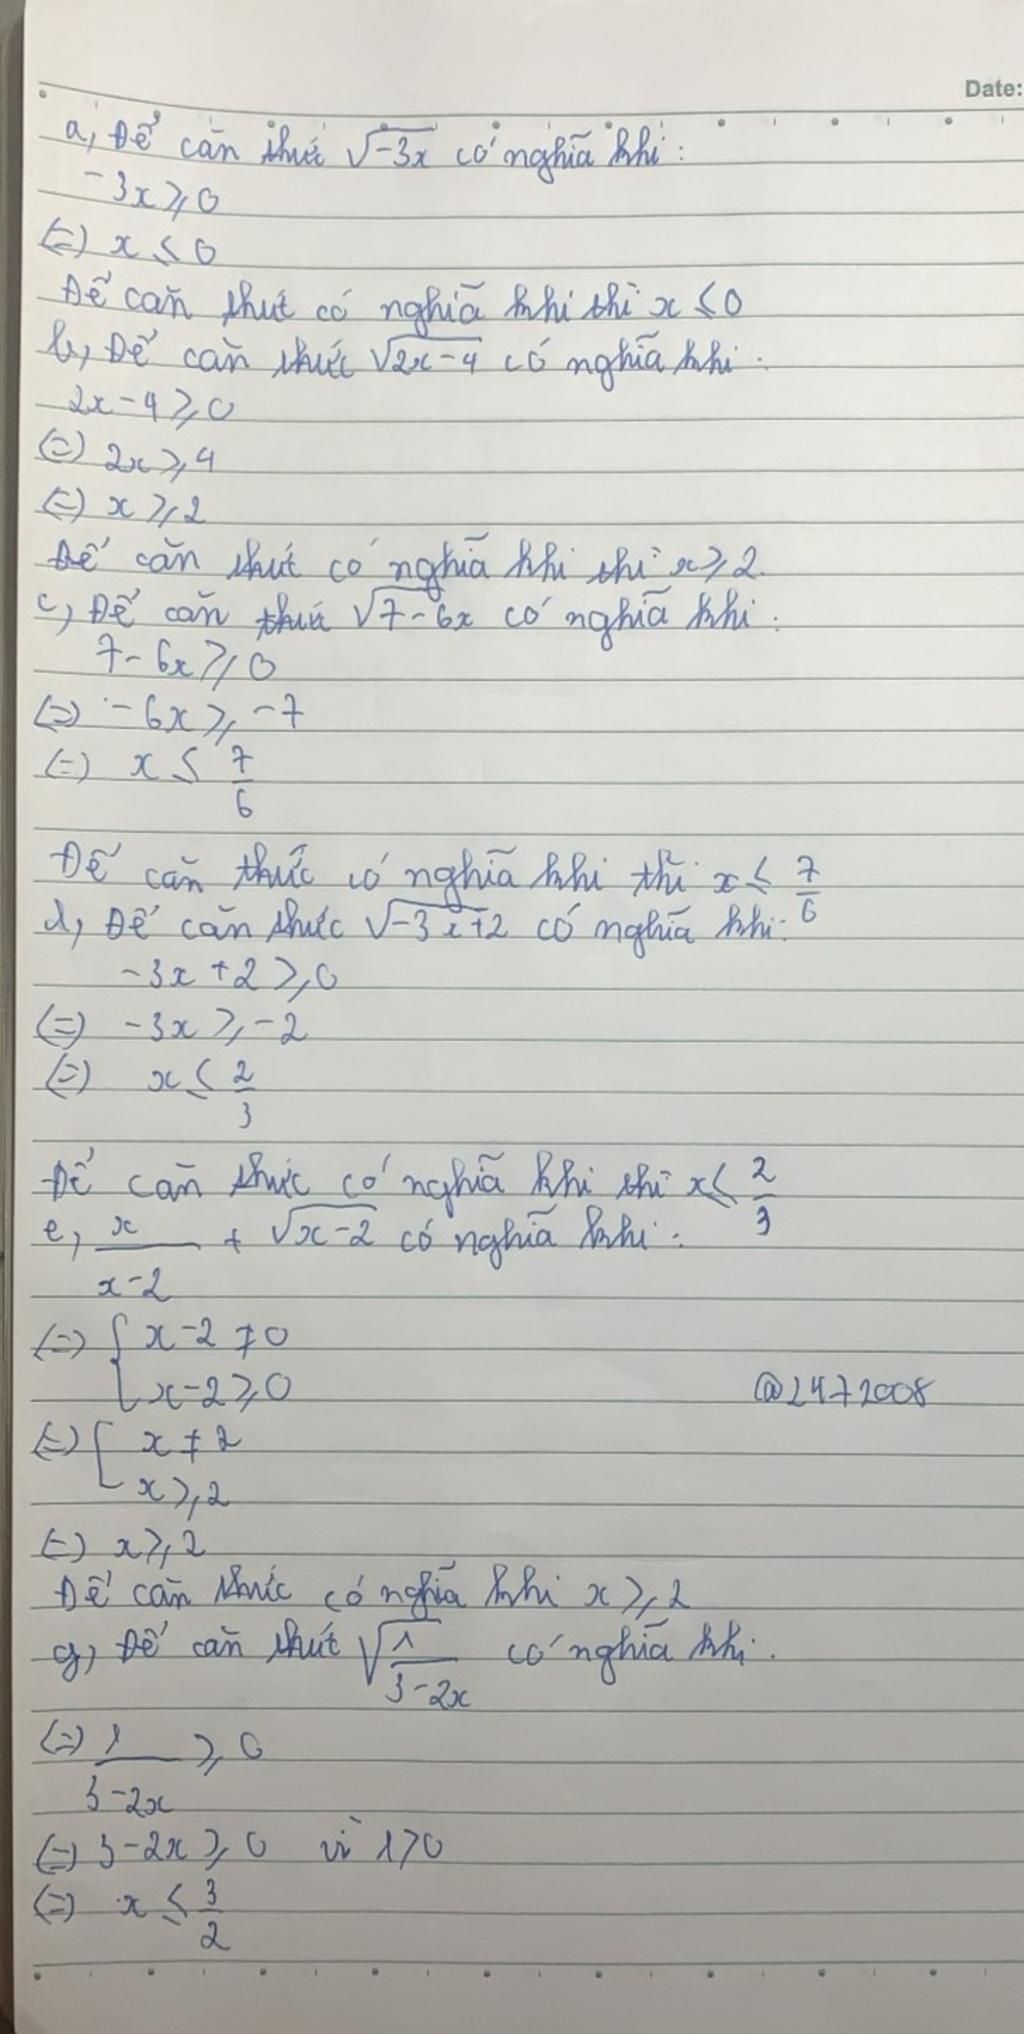 Date:
a, Để căn thức √-3x có nghĩa khi:
-3x ≥ 0
(=) x ≤ 0
Để căn thức có nghĩa khi thì x ≤ 0
b, Để căn thức √2x-4 có nghĩa khi:
2x-4 ≥ 0
(=) 2x ≥ 4
(=) x ≥ 2
Để căn thức có nghĩa khi thì x ≥ 2.
c, Để căn thức √7-6x có nghĩa khi:
7-6x ≥ 0
(=) -6x ≥ -7
(=) x ≤ 7/6
Để căn thức có nghĩa khi thì x ≤ 7/6
d, Để căn thức √-3x+2 có nghĩa khi:
-3x+2 ≥ 0
(=) -3x ≥ -2
(=) x ≤ 2/3
Để căn thức có nghĩa khi thì x ≤ 2/3
e, x/x-2 + √x-2 có nghĩa khi:
(=) { x-2 ≠ 0
x-2 ≥ 0
@2472008
(=) [ x ≠ 2
x ≥ 2
(=) x ≥ 2
Để căn thức có nghĩa khi x ≥ 2
g, Để căn thức √1/3-2x có nghĩa khi:
(=) 1/3-2x ≥ 0
(=) 3-2x ≥ 0 vì 1>0
(=) x ≤ 3/2